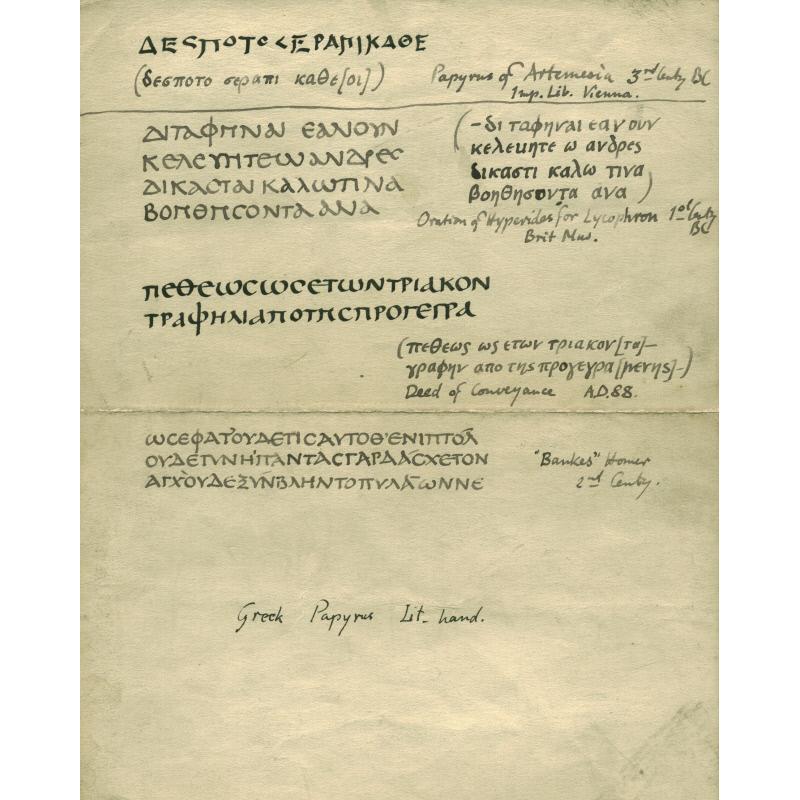 ΔΕϹΠΟΤΟϹΕΡΑΠΙΚΑΘΕ
(δεσποτο σεραπι καθε[οι]) Papyrus of Artemesia 3rd Centy BC
Imp. Lib. Vienna.
ΔΙΤΑΦΗΝΑΙ ΕΑΝΟΥΝ (-δι ταφηναι εαν ουν
ΚΕΛΕΥΗΤΕΩΑΝΔΡΕϹ κελευητε ω ανδρες
ΔΙΚΑϹΤΑΙ ΚΑΛΩΤΙΝΑ δικαστι καλω τινα
ΒΟΗΘΗϹΟΝΤΑ ΑΝΑ βοηθησοντα ανα)
Oration of Hyperides for Lycophron 1st Centy BC
Brit Mus.
ΠΕΘΕΩϹΩϹΕΤΩΝΤΡΙΑΚΟΝ
ΤΡΑΦΗΝΑΠΟΤΗϹΠΡΟΓΕΓΡΑ
(πεθεως ως ετων τριακον[τα]-
γραφην απο της προγεγρα[μενης]-)
Deed of Conveyance A.D.88.
ΩϹΕΦΑΤ'ΟΥΔΕΤΙϹΑΥΤΟΘ'ΕΝΙΠΤΟΛ
ΟΥΔΕΓΥΝΗ'ΠΑΝΤΑϹΓΑΡΑΑϹΧΕΤΟΝ "Bankes" Homer
ΑΓΧΟΥΔΕΞΥΝΒΛΗΝΤΟΠΥΛΑΩΝΝΕ 2nd Centy.
Greek Papyrus Lit. hand.